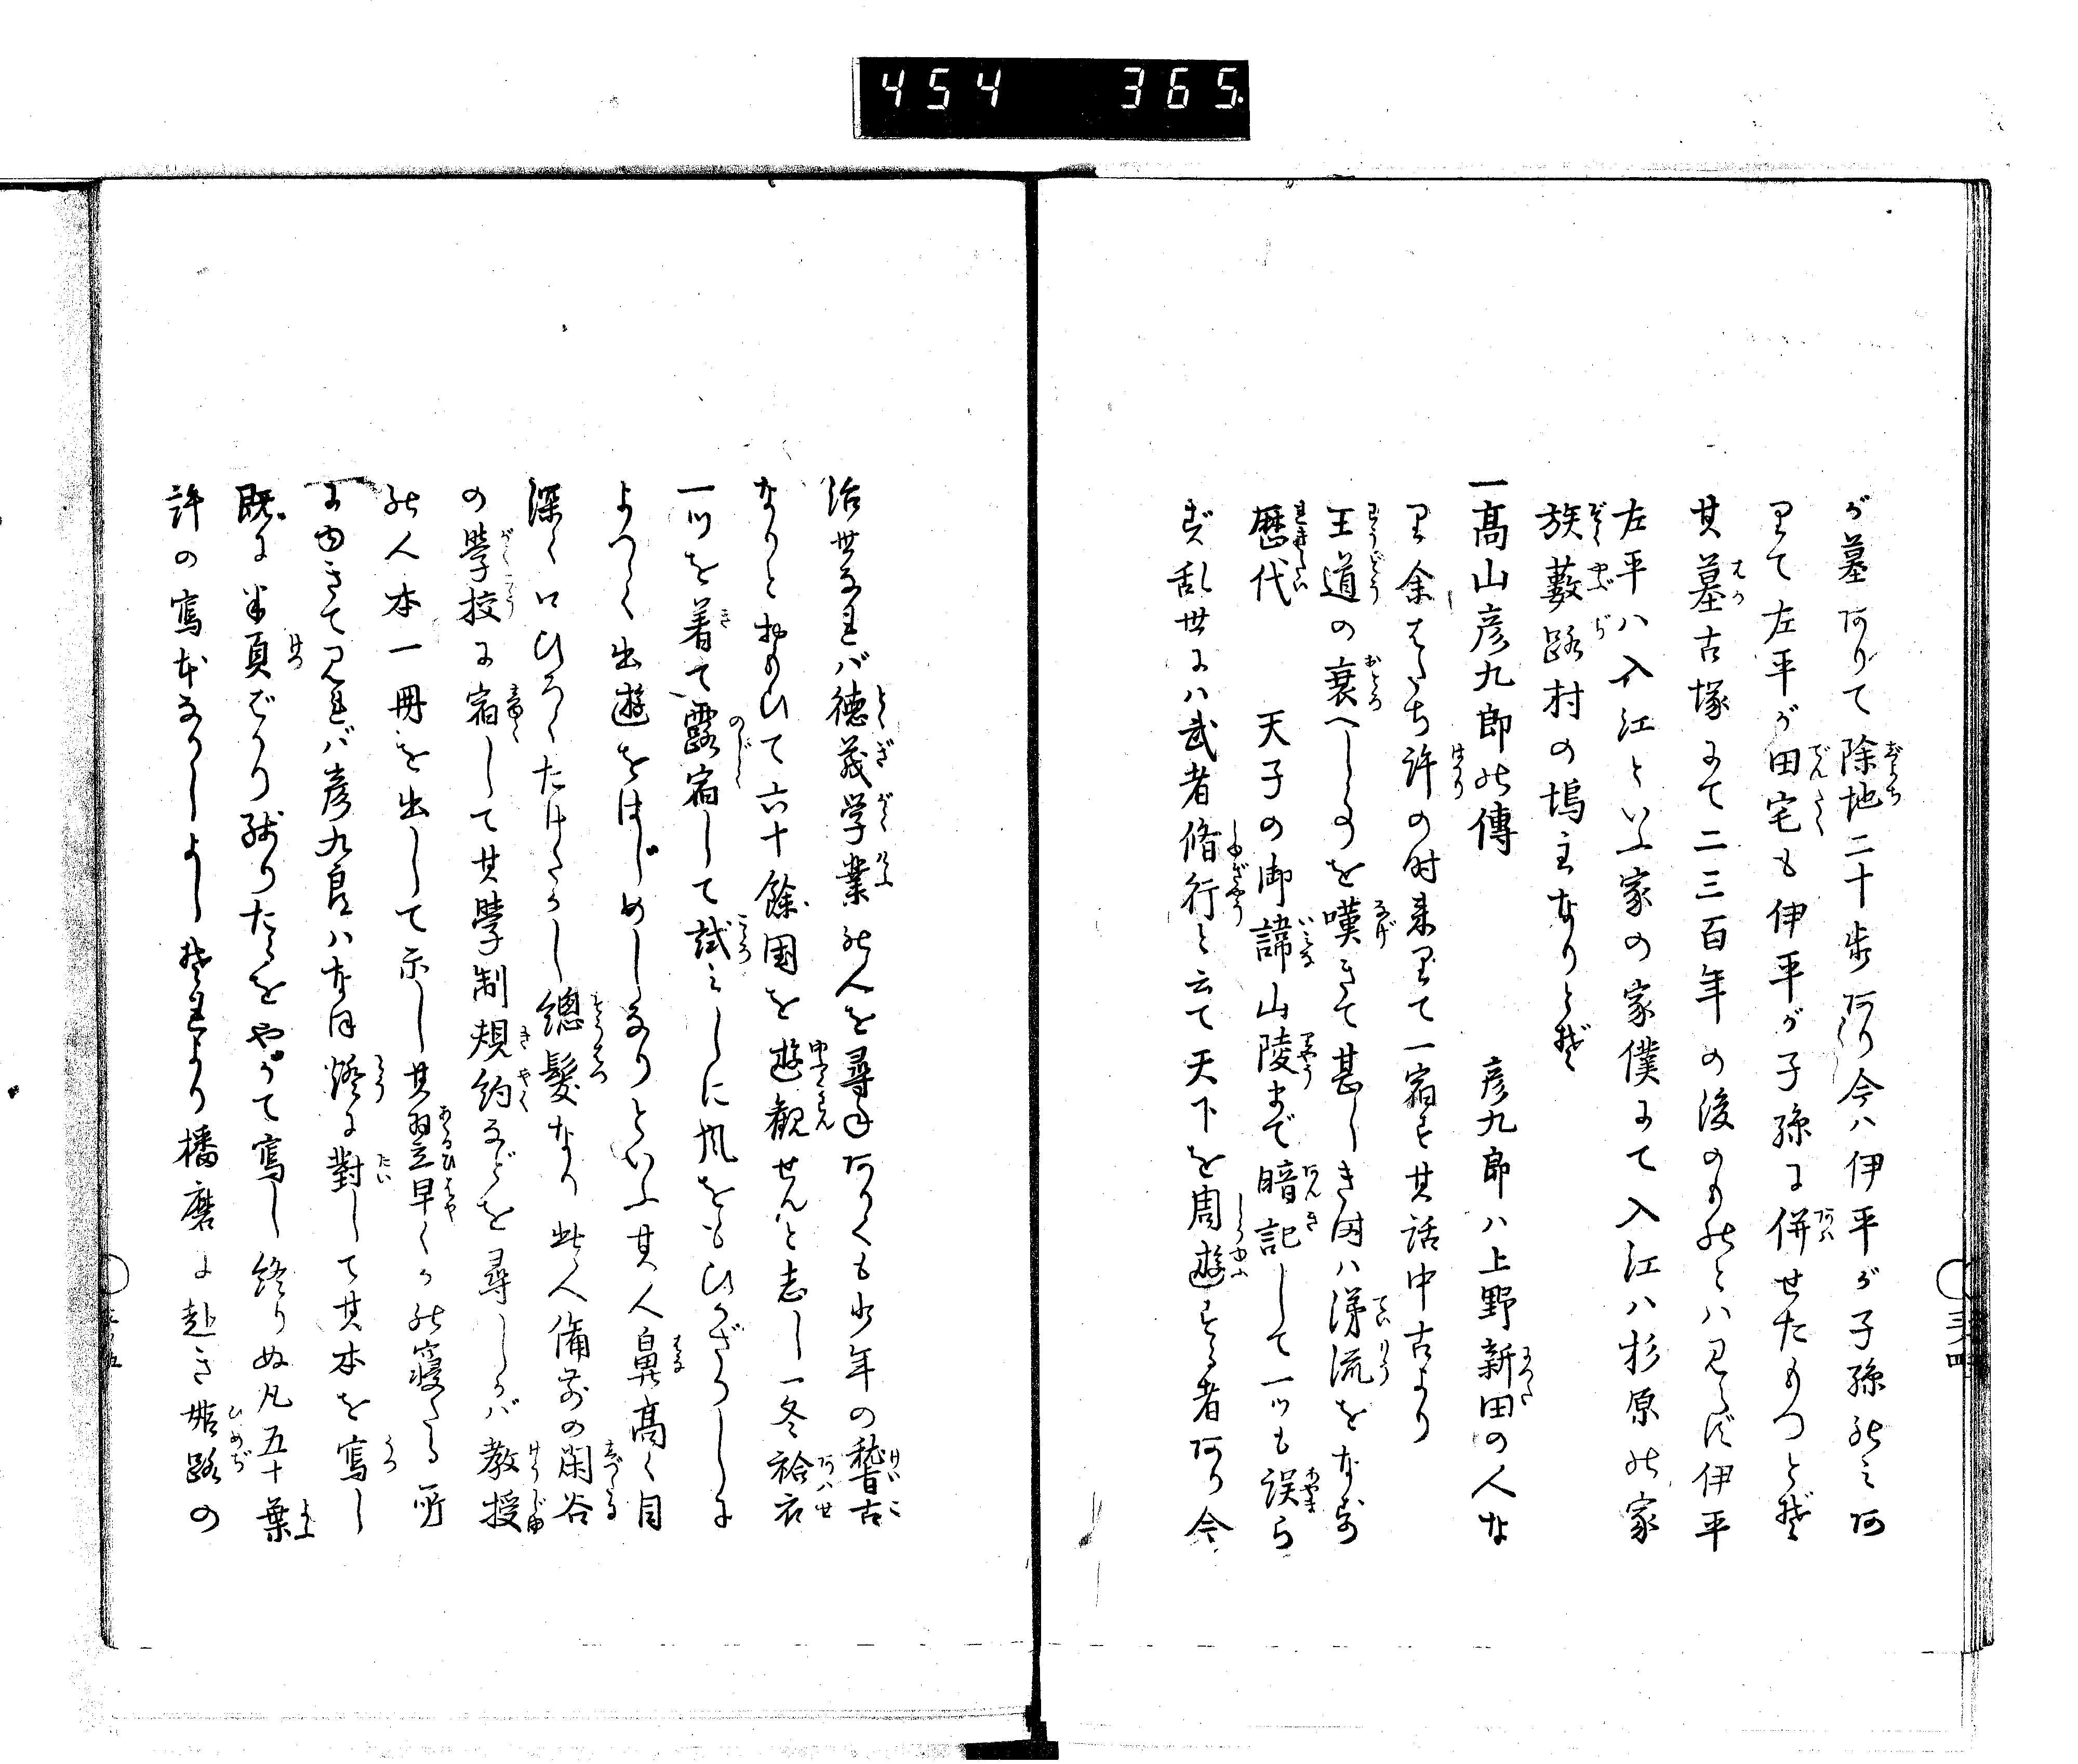 454 365
が墓ありて除地二十歩あり今ハ伊平が子孫のミあ
りて左平が田宅も伊平が子孫に併せたもつとぞ
其墓古塚にて二三百年の後のものとハ見えず伊平
左平ハ入江といふ家の家僕にて入江ハ杉原の家
族藪路村の塢主なりとぞ
一高山彦九郎の傳 彦九郎ハ上野新田の人な
り余はたち許の时来りて一宿す其話中古より
王道の衰へしのを嘆きて甚しき时ハ涕流をなす
歴代 天子の御諱山陵まで暗記して一ツも誤ら
ず乱世にハ武者脩行と云て天下を周遊する者あり今
治世なれバ徳義学業の人を尋ねありくも少年の稽古
なりとおもひて六十餘国を遊観せんと志し一冬袷衣
一ツを着て露宿して試ミしに風をもひかざりしに
よつて出遊をはじめしなりといふ其人鼻高く目
深く口ひろくたけたかし總髪なり此人備前の閑谷
の學校に宿して其學制規約などを尋しかバ教授
の人本一冊を出して示し其翌早くの寝たる所
にゆきて見れバ彦九良ハなほ燈に對して其本を寫し
既に半頁ばかり残りたるをやがて寫し終りぬ凡五十葉
許の寫本なりしよしそれより播磨に赴き姫路の